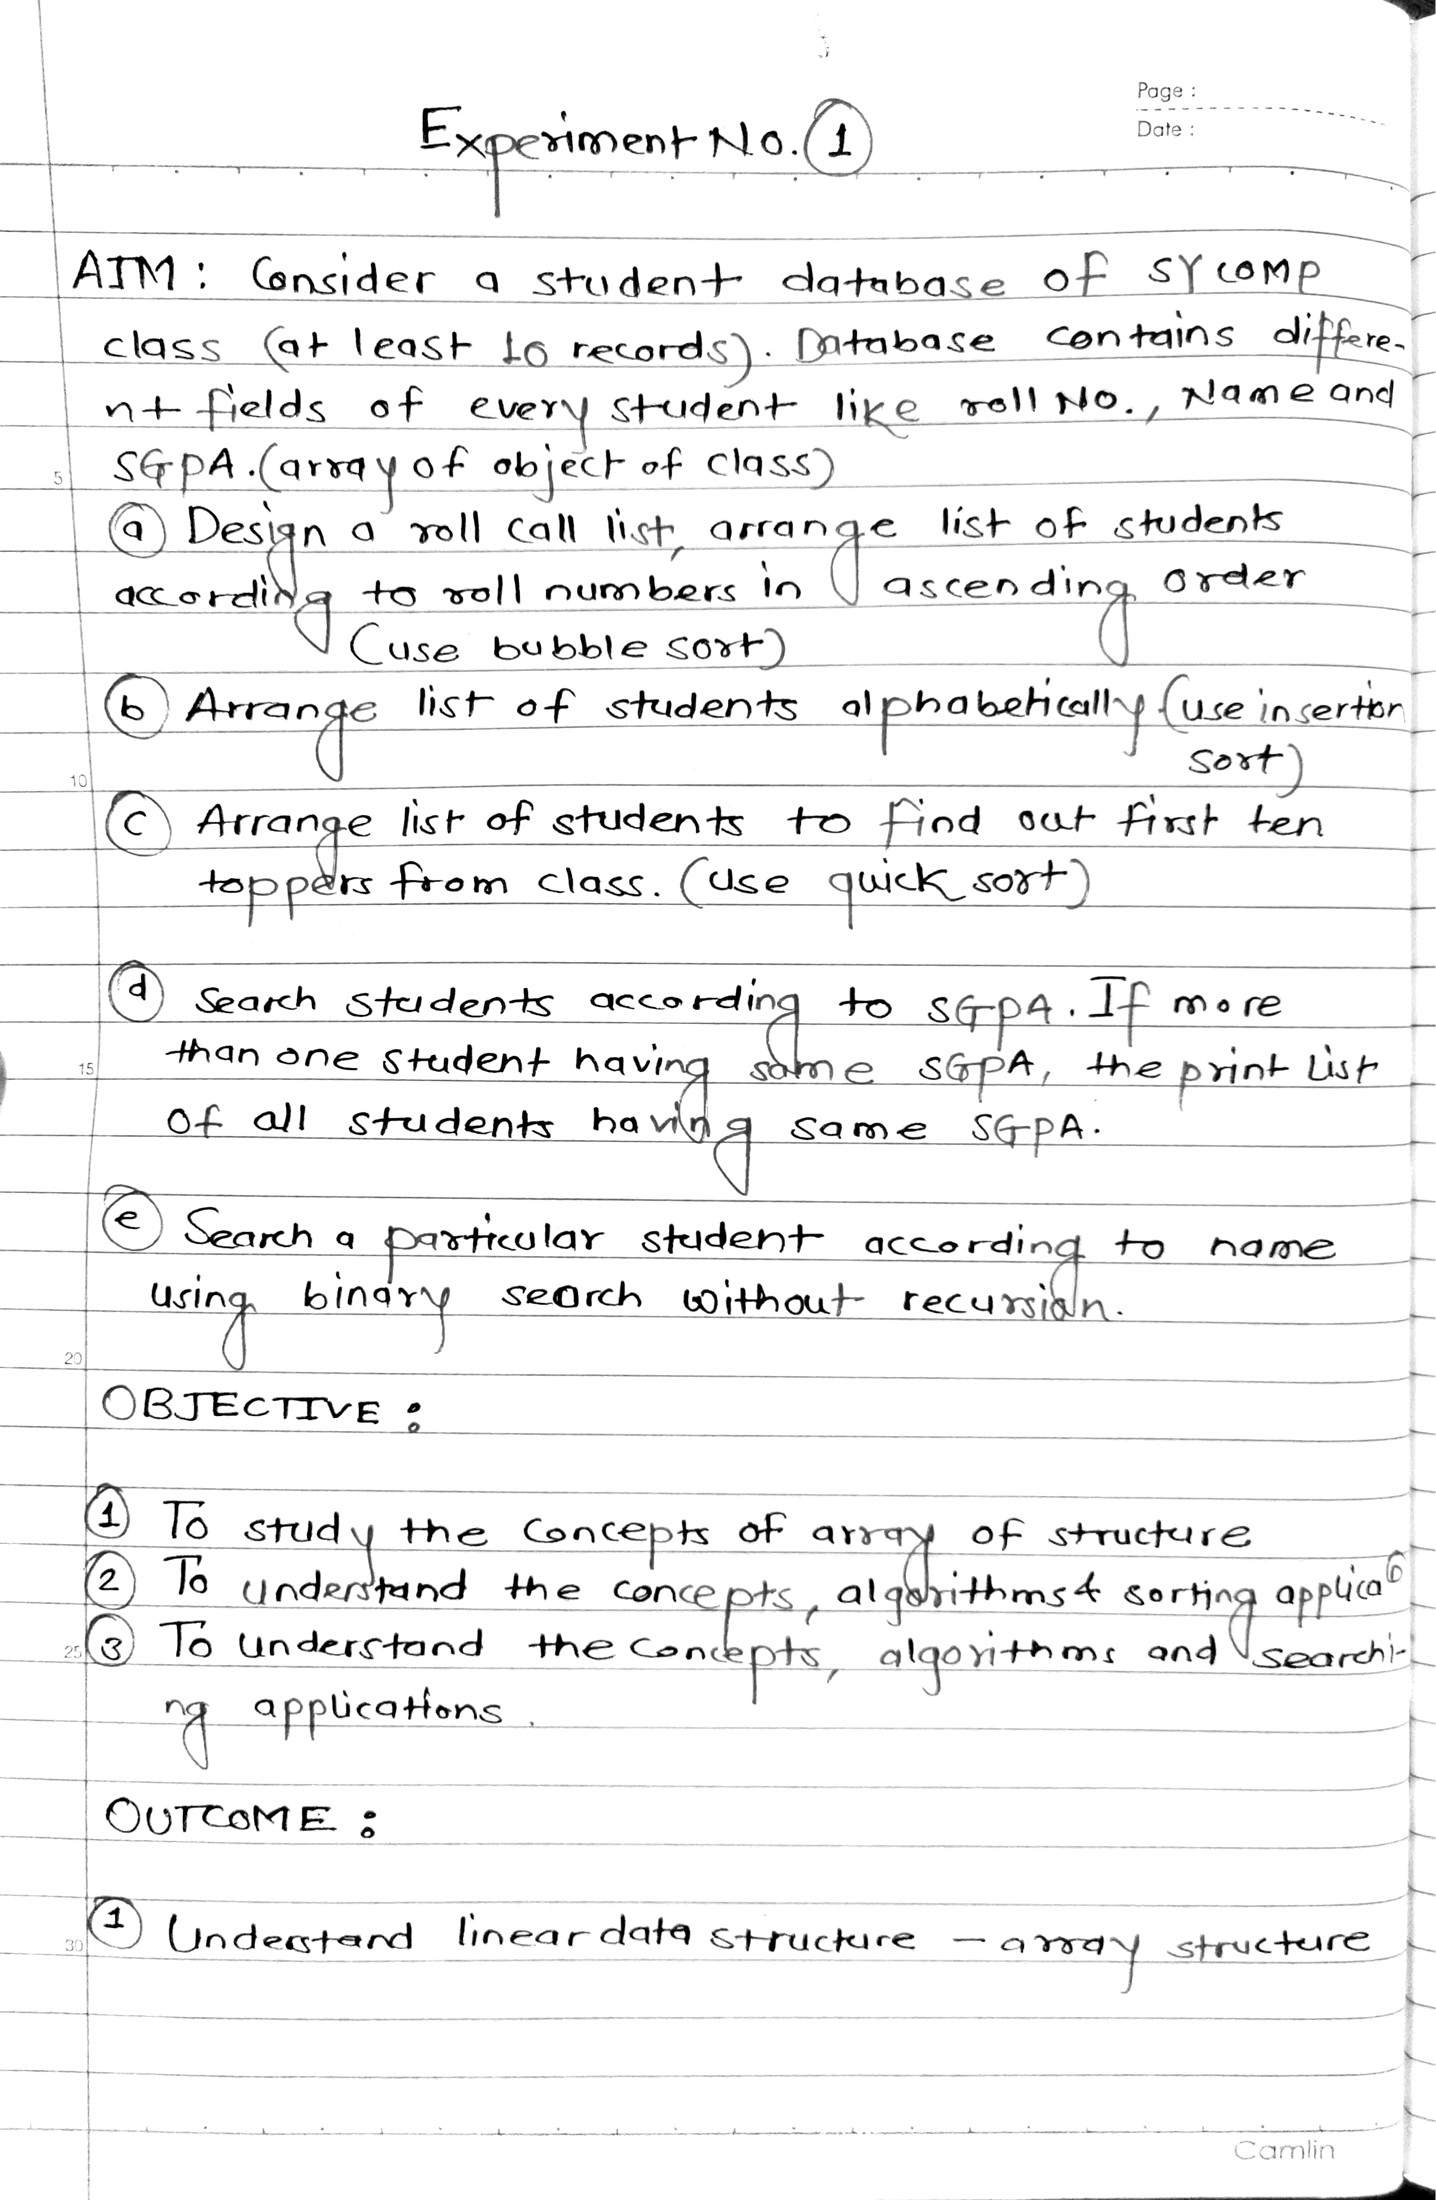 Page :
Date :
Experiment No. 1
AIM : Consider a student database of SY COMP
class (at least 10 records). Database contains differe-
nt fields of every student like roll No., Name and
5
SGPA. (array of object of class)
a Design a roll call list, arrange list of students
according to roll numbers in ascending order
(use bubble sort)
b Arrange list of students alphabetically (use insertion
sort)
10
c Arrange list of students to find out first ten
toppers from class. (use quick sort)
d Search students according to SGPA. If more
than one student having same SGPA, the print list
15
of all students having same SGPA.
e Search a particular student according to name
using binary search without recursion.
20
OBJECTIVE :
1 To study the concepts of array of structure
2 To understand the concepts, algorithms & sorting
25
3 To understand the concepts, algorithms and searchi-
ng applications.
OUTCOME :
1 Understand linear data structure – array structure
30
Camlin